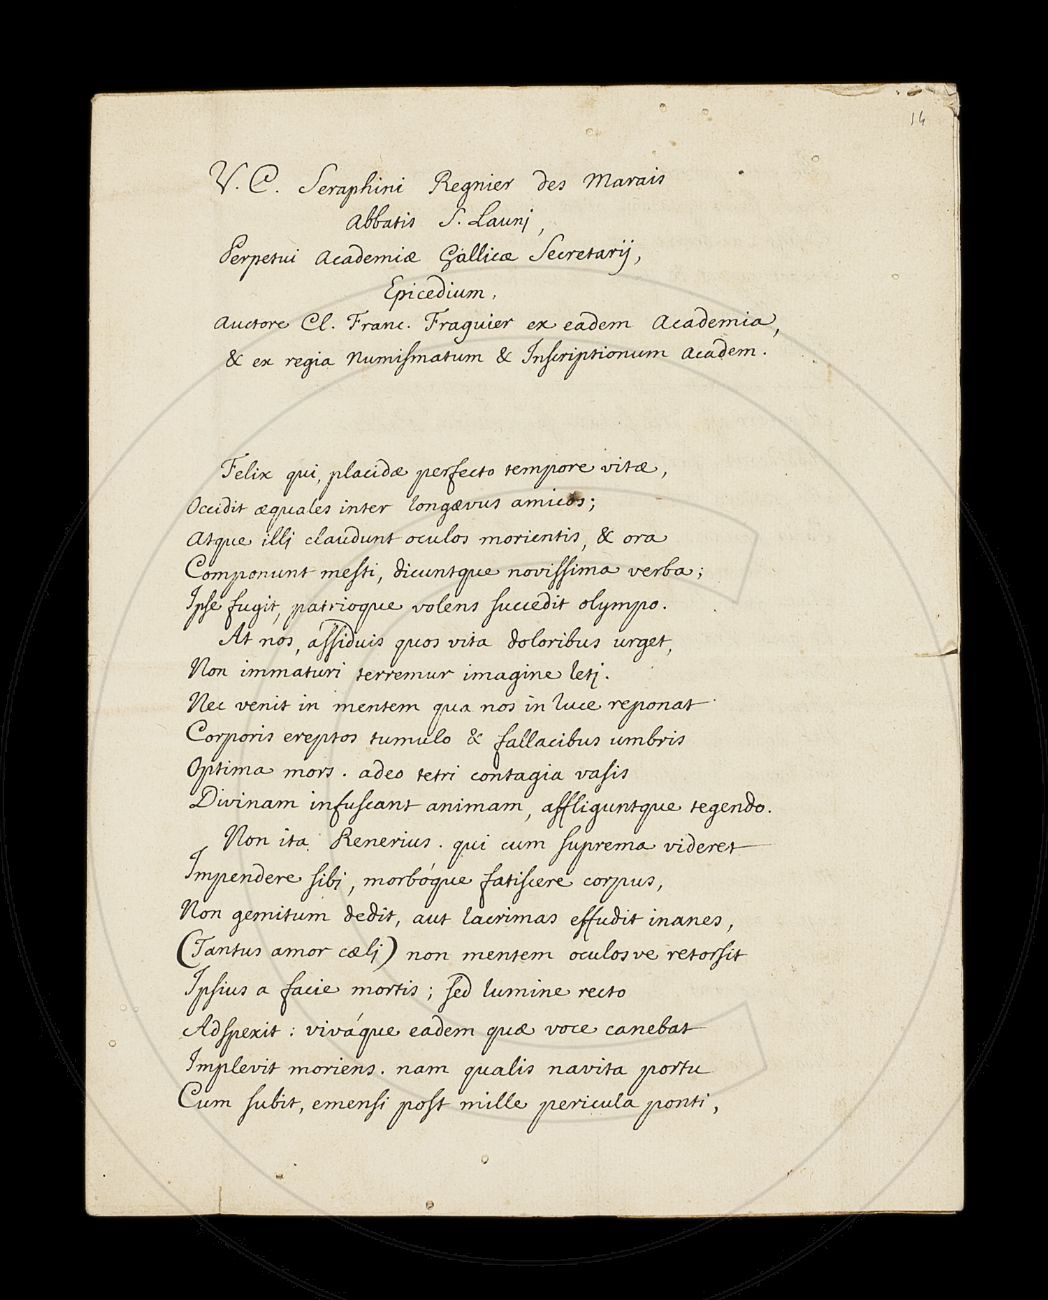 14
V. C. Seraphini Regnier des Marais
Abbatis S. Launj,
Perpetui Academiæ Gallicæ Secretarij,
Epicedium,
Auctore Cl. Franc. Fraguier ex eadem Academia,
& ex regia Numismatum & Inscriptionum Academ.
Felix qui, placidæ perfecto tempore vitæ,
Occidit æquales inter longævus amicos;
Atque illj claudunt oculos morientis, & ora
Componunt mesti, dicuntque novissima verba;
Ipse fugit, patrioque volens succedit olympo.
At nos, assiduis quos vita doloribus urget,
Non immaturi terremur imagine letj.
Nec venit in mentem qua nos in luce reponat
Corporis ereptos tumulo & fallacibus umbris
Optima mors. adeo tetri contagia vasis
Divinam infuscant animam, affliguntque tegendo.
Non ita Renerius. qui cum suprema videret
Impendere sibj, morbóque fatiscere corpus,
Non gemitum dedit, aut lacrimas effudit inanes,
(Tantus amor cælj) non mentem oculosve retorsit
Ipsius a facie mortis; sed lumine recto
Adspexit: viváque eadem quæ voce canebat
Implevit moriens. nam qualis navita portu
Cum subit, emensi post mille pericula ponti,